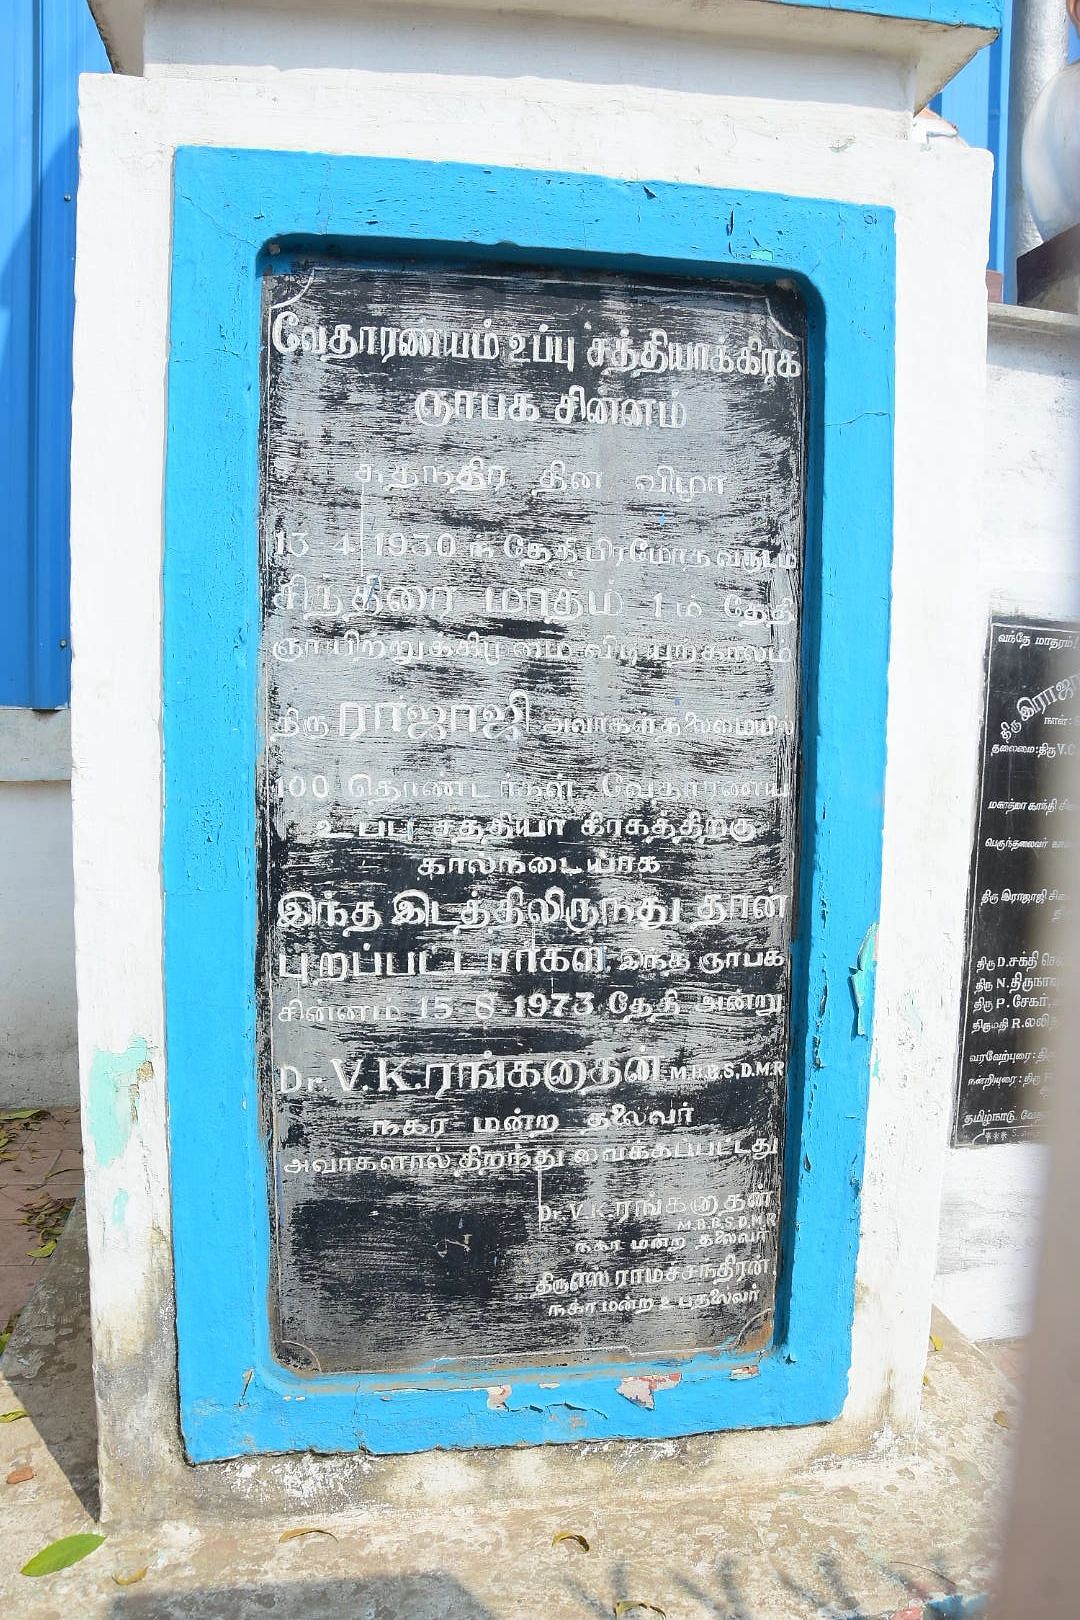 வேதாரண்யம் உப்பு சத்தியாக்கிரக
ஞாபக சின்னம்
சுதந்திர தின விழா
13 4 1930 ந் தேதி பிரமோத வருடம்
சித்திரை மாதம் 1 ம் தேதி
ஞாயிற்றுக்கிழமை விடியற்காலம்
திரு ராஜாஜி அவர்கள் தலைமையில்
100 தொண்டர்கள் வேதாரண்ய
உப்பு சத்தியா கிரகத்திற்கு
கால்நடையாக
இந்த இடத்திலிருந்து தான்
புறப்பட்டார்கள். இந்த ஞாபக
சின்னம் 15-8-1973 தேதி அன்று
Dr. V. K. ரங்கனாதன். M.B.B.S, D.M.R
நகர மன்ற தலைவர்
அவர்களால் திறந்து வைக்கப்பட்டது
Dr. V. K. ரங்கனாதன்
M.B.B.S, D.M.R
நகர மன்ற தலைவர்
திரு எஸ். ராமச்சந்திரன்.
நகர மன்ற உபதலைவர்
வந்தே மாதரம்!
திரு இராஜா
நாள்:
தலைமை: திரு V.C
மகாத்மா காந்தி
பெருந்தலைவர்
திரு இராஜாஜி
திரு D. சக்தி
திரு N. திருநாவு
திரு P. சேகர்,
திருமதி R. லலி
வரவேற்புரை:
நன்றியுரை: திரு
தமிழ்நாடு.